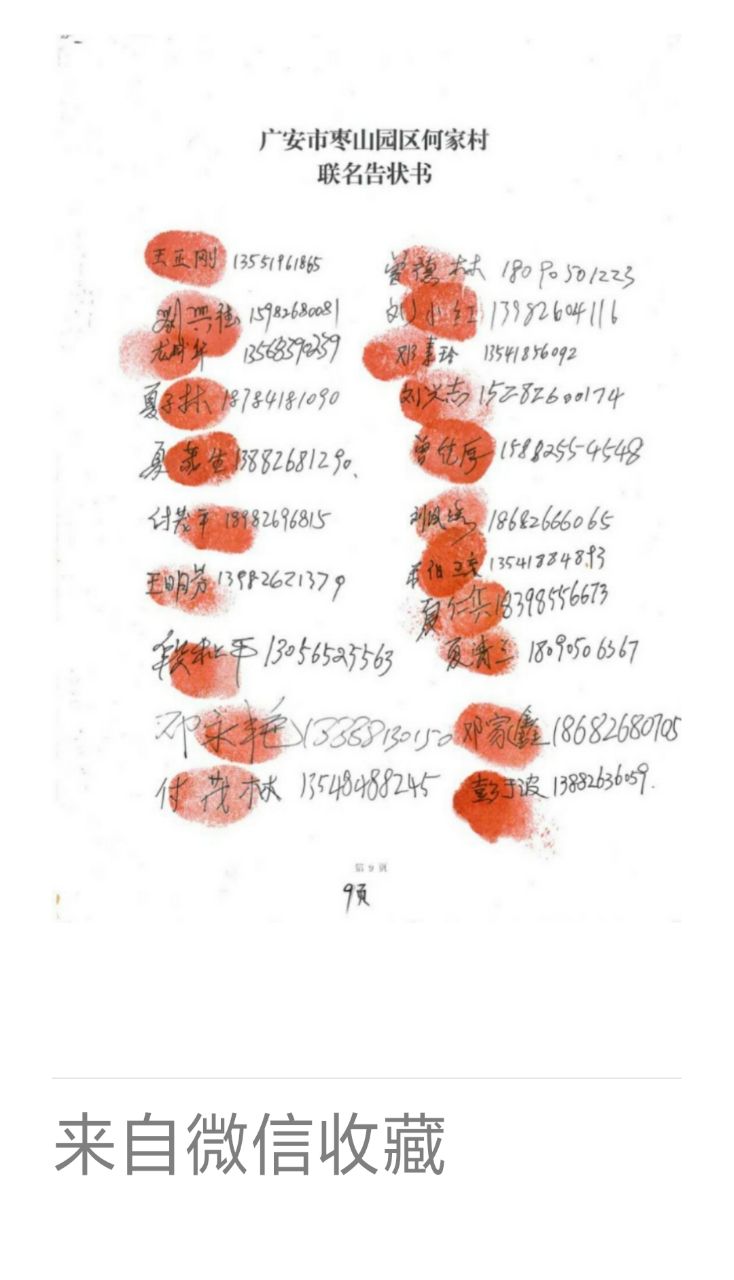 广安市枣山园区何家村
联名告状书
王正刚 13551961865 曾德林 18090501223
刘兴德 15982680081 刘小红 13982604116
龙成华 13568390259 邓素珍 13541856092
夏子林 18784181090 刘兴志 15282600174
夏素生 13882681290 曾纪厚 15882554548
付茂平 18982696815 刘凤 18682666065
王明芳 13982621379 13541884893
夏仁兵 18398556673
段松平 13056525563 夏清兰 18090506367
邓永艳 13388130150 邓家鑫 18682680705
付茂林 13548488245 彭于波 13882636059.
第 9 页
9页
来自微信收藏